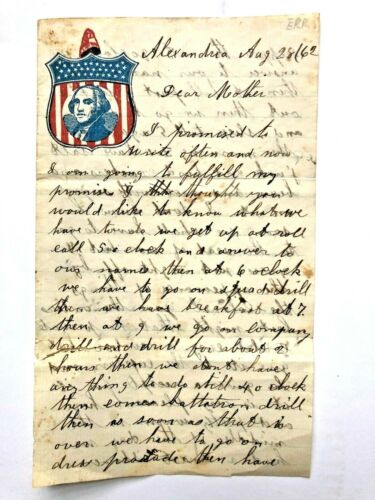 ERR
Alexandria Aug 28/62
Dear Mother
I promised to
write often and now
I am going to fulfill my
promise I thought you
would like to know what we
have to do we get up at roll
call 5 o clock and answer to
our names then at 6 o clock
we have to go on squad drill
then we have breakfast at 7
then at 9 we go on company
drill and drill for about 2
hours then we dont have
any thing to do till 4 o clock
then comes battalion drill
then as soon as that is
over we have to go on
dress parade then have